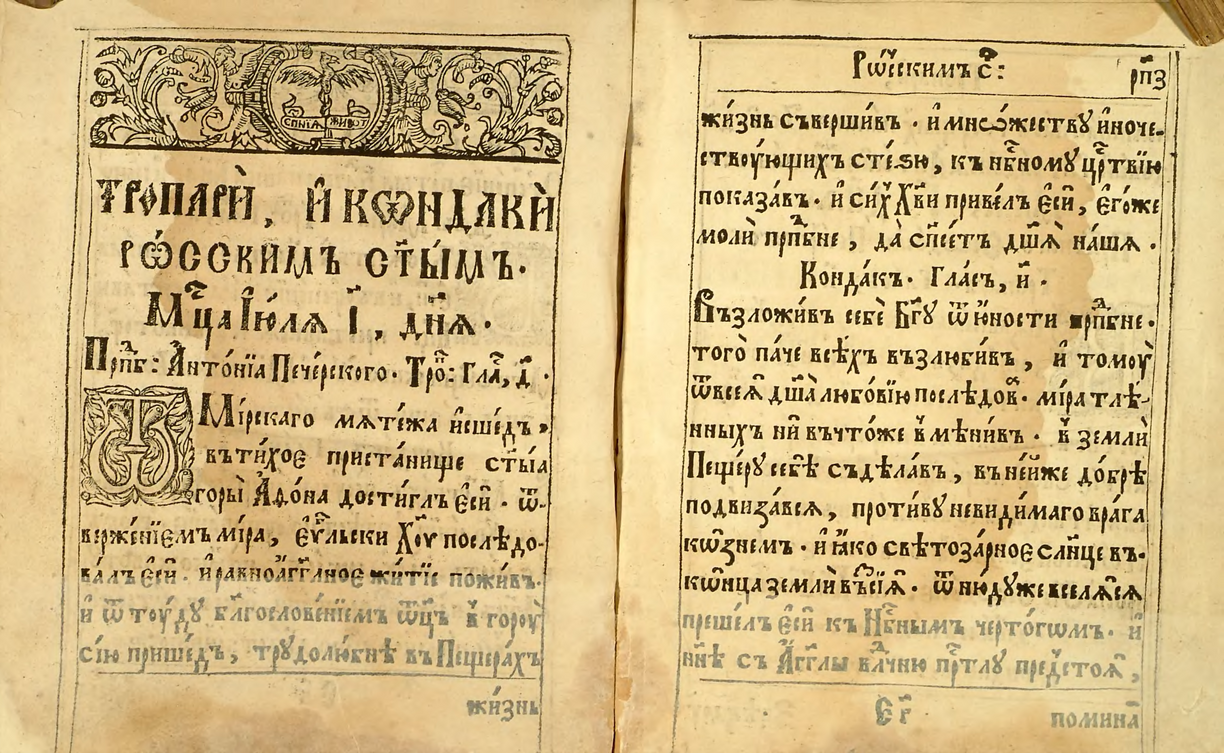 СПНІА ЖИВОТ
ТРОПАРЍ, И҆ КѠНДАКЍ
РѠ́ССКИМЪ СТ҃Ы́МЪ.
Мцⷭ҇а І҆ю́лѧ І҃, дн҃ѧ.
Прпⷣб: А҆нто́нїа Пече́рского. Троⷫ: Глⷭ҇а, д҃.
Ѿ Мі́рскаго мѧте́жа и҆сше́дъ,
въти́хое приста́нище ст҃ы́ѧ
горы̀ А҆ѳѡ́на дости́глъ є҆сѝ. ѿ-
верже́нїемъ мі́ра, є҆ѵⷢ҇льски Хо҃у послѣ́до-
ва́лъ є҆сѝ. и҆ равноа҆́гг҃лное житїѐ пожи́въ.
и҆ ѿтоу́ду блгⷭ҇ослове́нїемъ ѿц҃ъ в̾ гороу̀
сїю̀ прише́дъ, трудолю́бнѣ въ Пеще́рахъ
жи́знь
Рѡ́сскимъ с҃: рп҃з
жи́знь съверши́въ. и҆ мно́жеству и҆ноче-
ствоу́ющихъ сте́зю, къ нб҃ному црⷭ҇твїю
показа́въ. и҆ си́хъ Хв҃и приве́лъ є҆сѝ, є҆го́же
молѝ прпⷣбне, да̀ сп҃се́тъ дш҃ѧ̀ на́шѧ.
Конда́къ. Гла́съ, и҃.
Възложи́въ себѐ Бг҃у ѿ ю҆́ности прпⷣбне.
того̀ па́че всѣ́хъ възлюби́въ, и҆ томоу̀
ѿ всеѧ̀ дш҃а̀ любо́вїю послѣ́довⷡ. мі́ра тлѣ́-
нныхъ нѝ въчто́же в̾мѣни́въ. в̾ землѝ
Пеще́ру себѣ̀ съдѣ́лавъ, в̾ не́йже до́брѣ
подвиза́всѧ, проти́ву неви́димаго врага̀
кѡ́знемъ. и҆ ꙗ҆́ко свѣтоза́рное сл҃нце въ-
кѡ́нца землѝ въсїѧ̀. ѿню́дуже вселѧ́ѧсѧ
преше́лъ є҆сѝ къ Нб҃нымъ черто́гѡмъ. и҆
нн҃ѣ съ А҆́гг҃лы влⷣчню прⷭ҇тлу предⷭ҇тоѧ̀,
Є҃г помина́